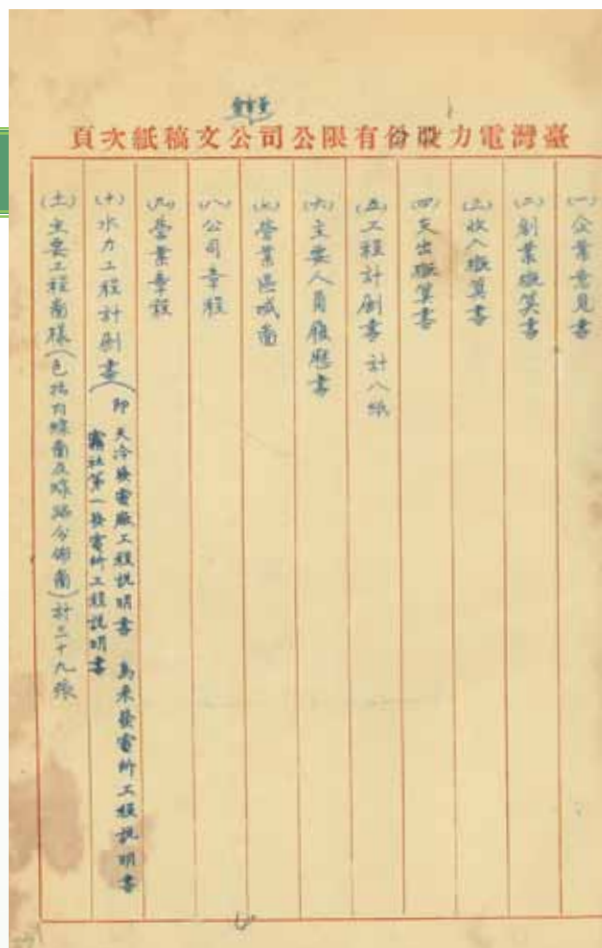 臺灣電力股份有限公司公文稿紙次頁
(一)企業意見書
(二)創業概算書
(三)收入概算書
(四)支出概算書
(五)工程計劃書 計八紙
(六)主要人員履歷書
(七)營業區域圖
(八)公司章程
(九)營業章程
(十)水力工程計劃書(即 天冷發電廠工程說明書 烏來發電所工程說明書
霧社第一發電所工程說明書
(土)主要工程圖樣(包括內線圖及線路分佈圖)計三十九張